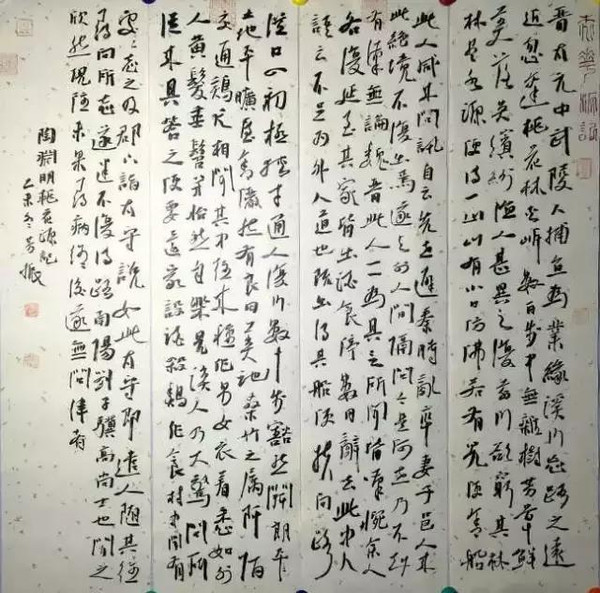 桃花源記
晋太元中武陵人捕魚為業緣溪行忘路之遠
近忽逢桃花林夾岸數百步中無雜樹芳草鮮
美落英繽紛漁人甚異之復前行欲窮其林
林盡水源便得一山山有小口仿佛若有光便舍船
此人咸來問訊自云先世避秦時亂率妻子邑人來
此絕境不復出焉遂與外人間隔問今是何世乃不知
有漢無論魏晋此人一一為具言所聞皆嘆惋餘人
各復延至其家皆出酒食停數日辭去此中人
語云不足為外人道也既出得其船便扶向路
從口入初極狹才通人復行數十步豁然開朗土
地平曠屋舍儼然有良田美池桑竹之屬阡陌
交通鷄犬相聞其中往來種作男女衣着悉如外
人黃髮垂髫并怡然自樂見漁人乃大驚問所
從來具答之便要還家設酒殺鷄作食村中聞有
處處志之及郡下詣太守說如此太守即遣人隨其往
尋向所志遂迷不復得路南陽劉子驥高尚士也聞之
欣然規往未果尋病終後遂無問津者
陶淵明桃花源記
乙未冬芳